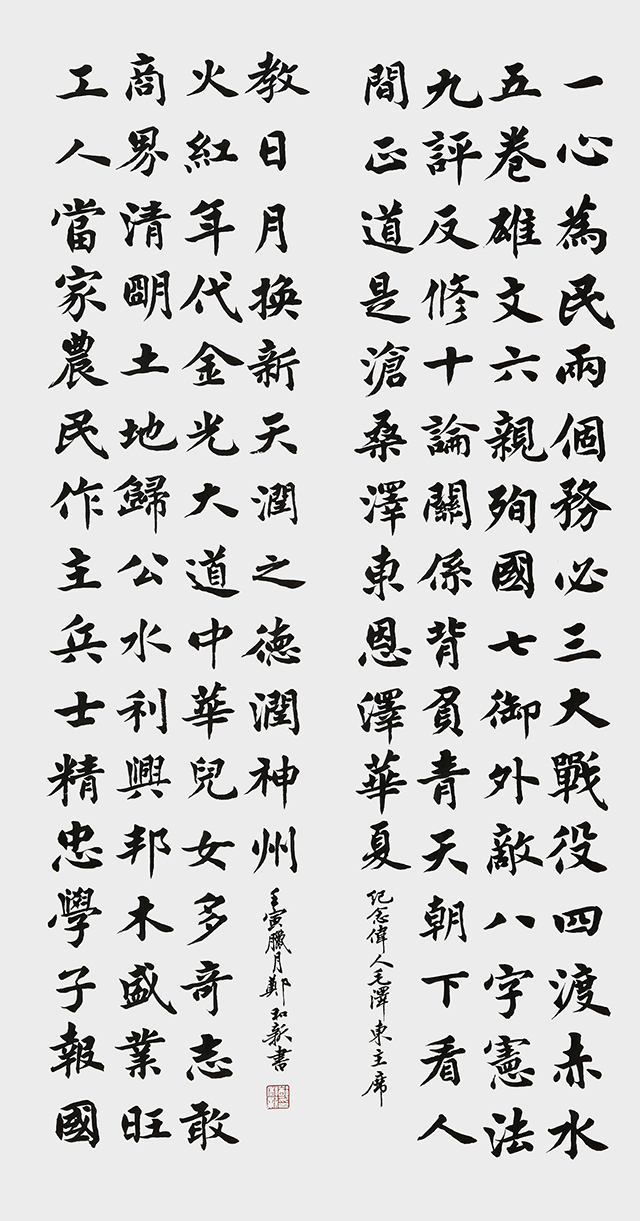 一心為民兩個務必三大戰役四渡赤水
五卷雄文六親殉國七御外敵八字憲法
九評反修十論關係背負青天朝下看人
間正道是滄桑澤東恩澤華夏
紀念偉人毛澤東主席
工人當家農民作主兵士精忠學子報國
商界清朙土地歸公水利興邦木盛業旺
火紅年代金光大道中華兒女多奇志敢
教日月換新天潤之德潤神州
壬寅臘月鄭和新書